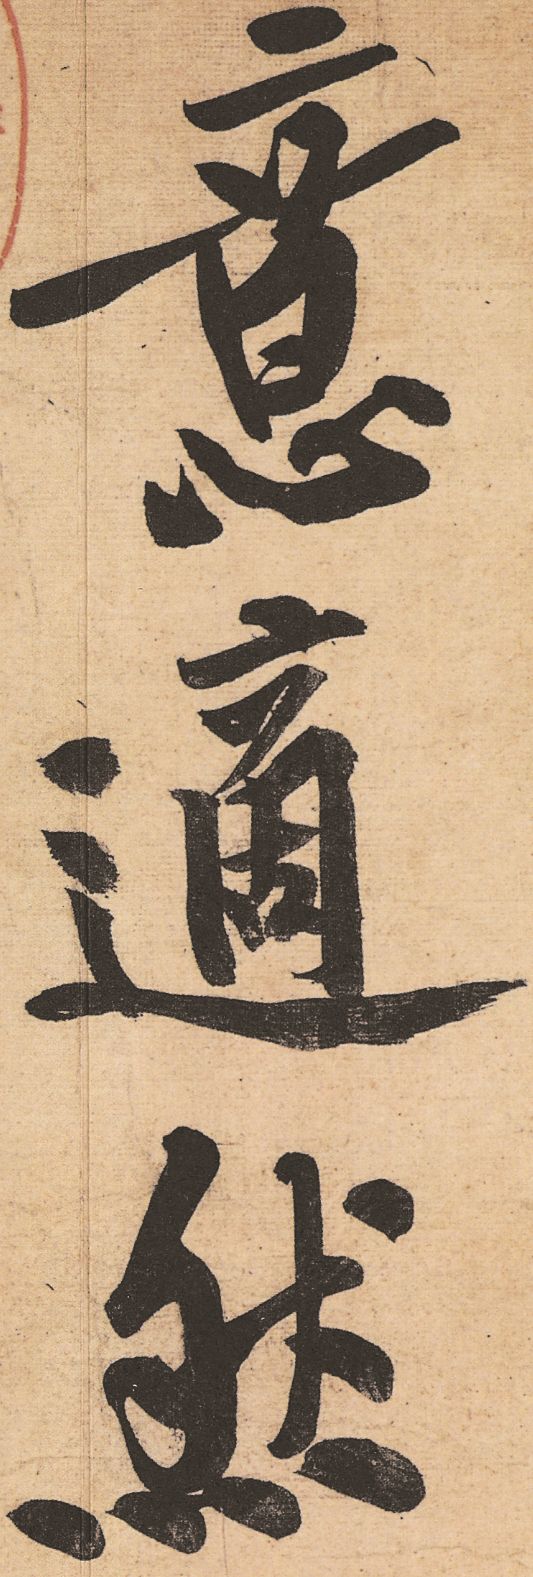 意適然